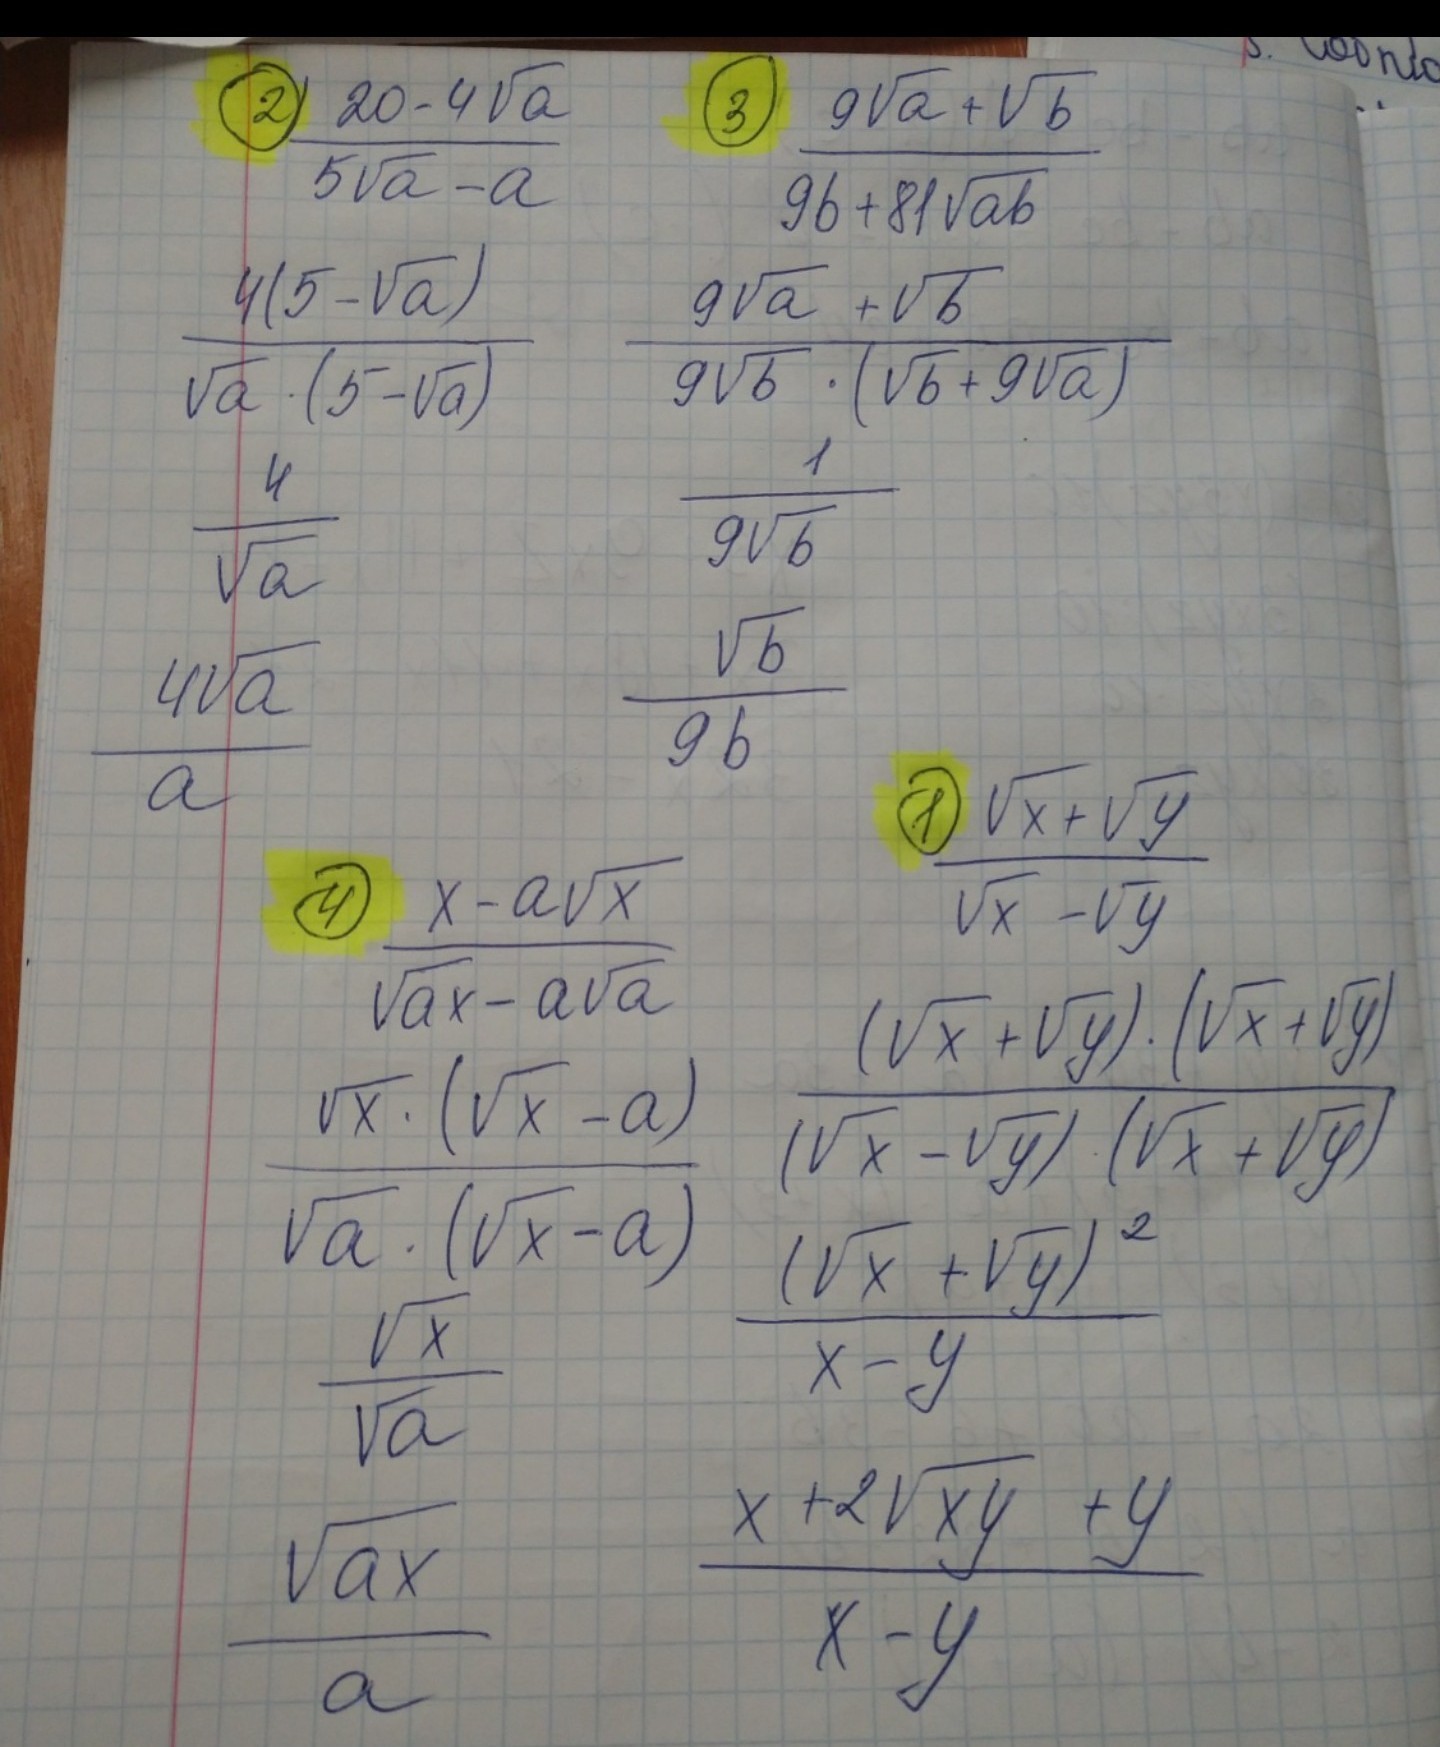 2) 20-4√a
5√a -a
4(5-√a)
√a ·(5-√a)
4
√a
4√a
a
3 9√a+√b
9b+81√ab
9√a +√b
9√b ·(√b+9√a)
1
9√b
√b
9b
4 x-a√x
√ax-a√a
√x·(√x-a)
√a·(√x-a)
√x
√a
√ax
a
1 √x+√y
√x -√y
(√x+√y)·(√x+√y)
(√x-√y)·(√x+√y)
(√x +√y)²
x-y
x+2√xy +y
x-y